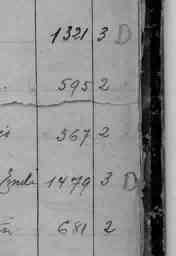 1321 3 D
595 2
567 2
1479 3 D
681 2